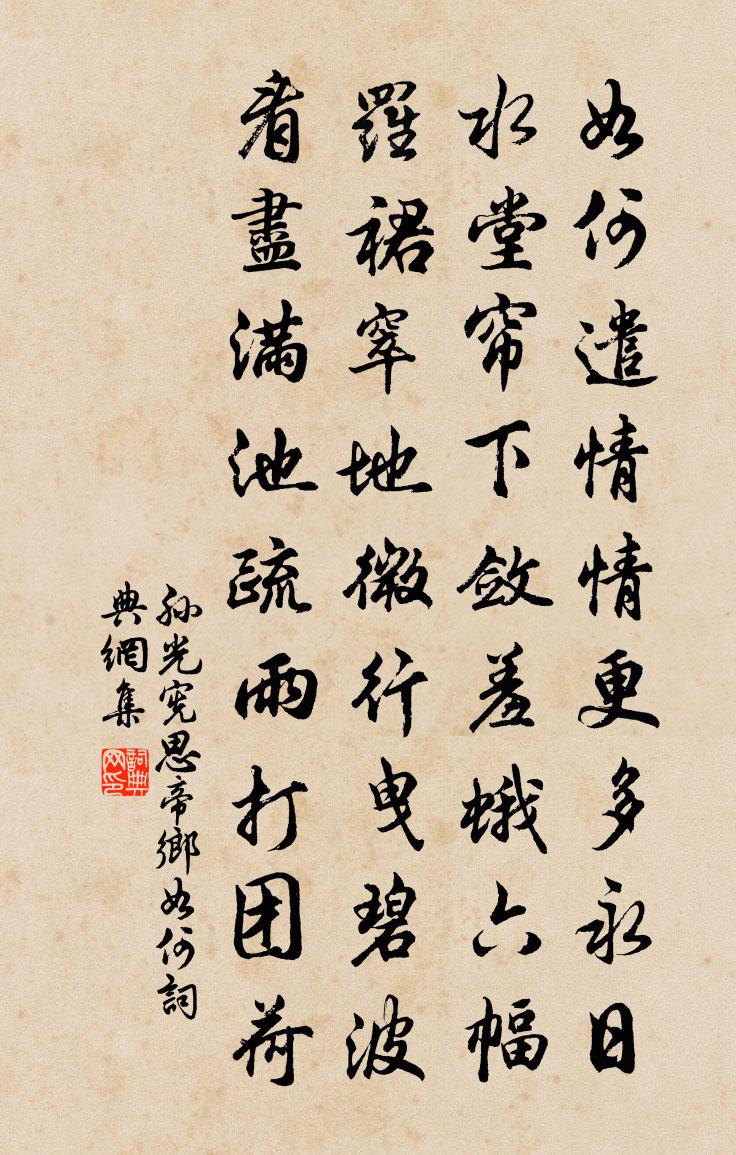 如何遣情情更多永日
水堂帘下敛羞蛾六幅
羅裙窣地微行曳碧波
看盡滿池疏雨打团荷
孙光宪思帝鄉如何詞
典網集
詞典
网印